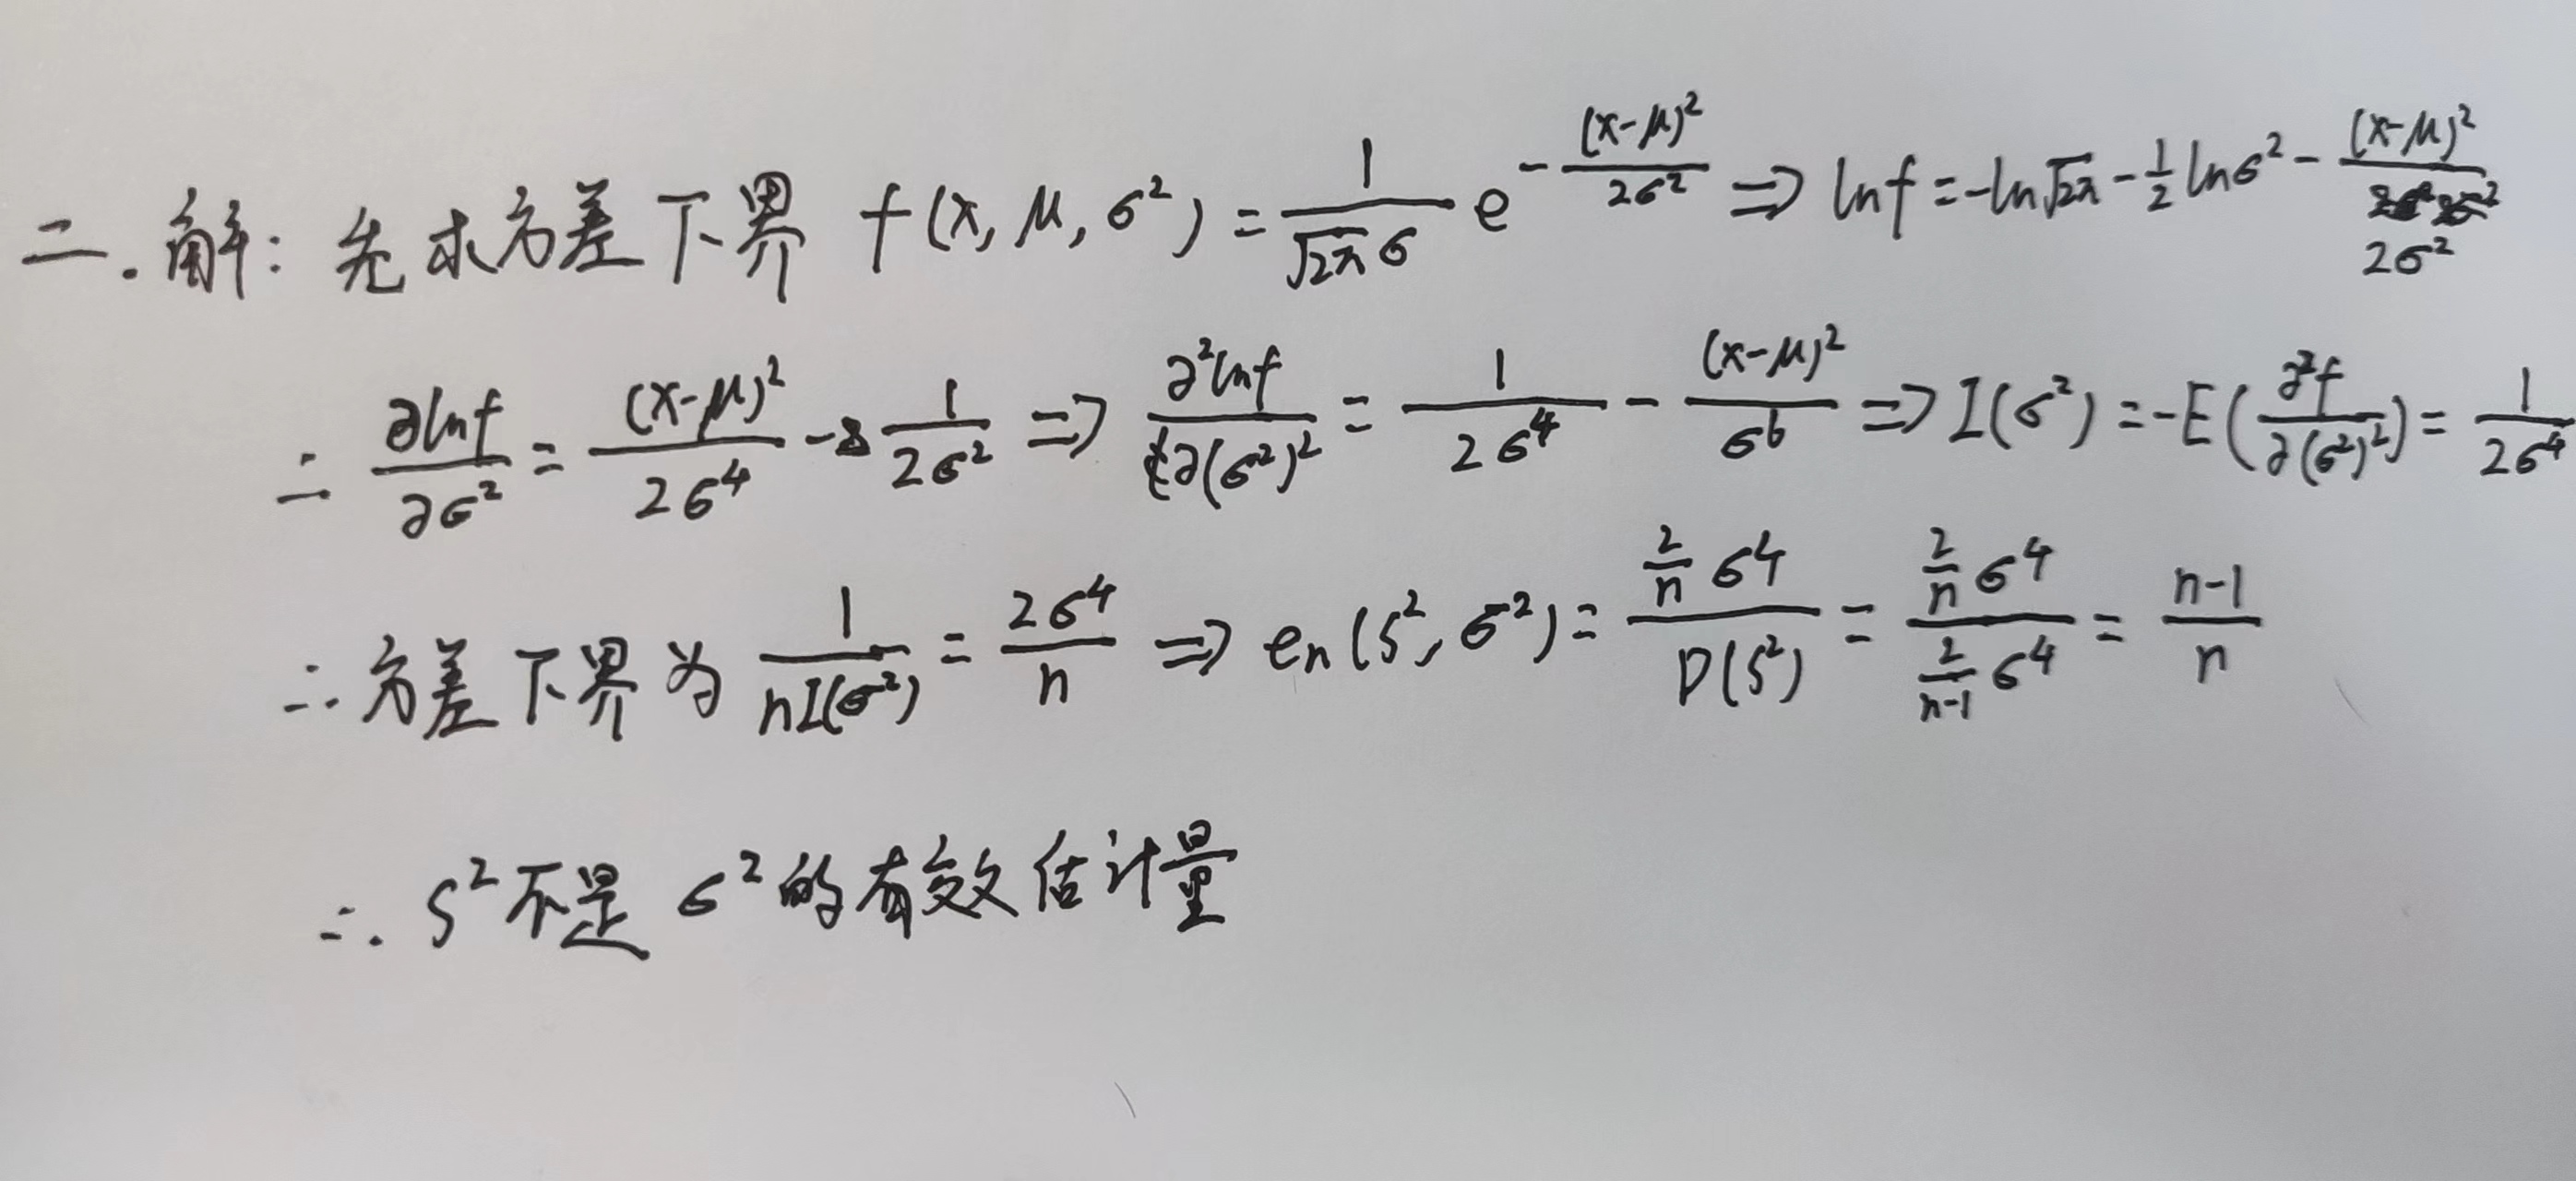 二.解:先求方差下界 f(x,μ,σ²)=\frac{1}{\sqrt{2π}σ}e^{-\frac{(x-μ)²}{2σ²}} ⇒ lnf=-ln\sqrt{2π}-\frac{1}{2}lnσ²-\frac{(x-μ)²}{2σ²}
∴ \frac{∂lnf}{∂σ²}=\frac{(x-μ)²}{2σ⁴}-\frac{1}{2σ²} ⇒ \frac{∂²lnf}{∂(σ²)²}=\frac{1}{2σ⁴}-\frac{(x-μ)²}{σ⁶} ⇒ I(σ²)=-E(\frac{∂²f}{∂(σ²)²})=\frac{1}{2σ⁴}
∴方差下界为\frac{1}{nI(σ²)}=\frac{2σ⁴}{n} ⇒ en(S²,σ²)=\frac{\frac{2}{n}σ⁴}{D(S²)}=\frac{\frac{2}{n}σ⁴}{\frac{2}{n-1}σ⁴}=\frac{n-1}{n}
∴ S²不是σ²的有效估计量